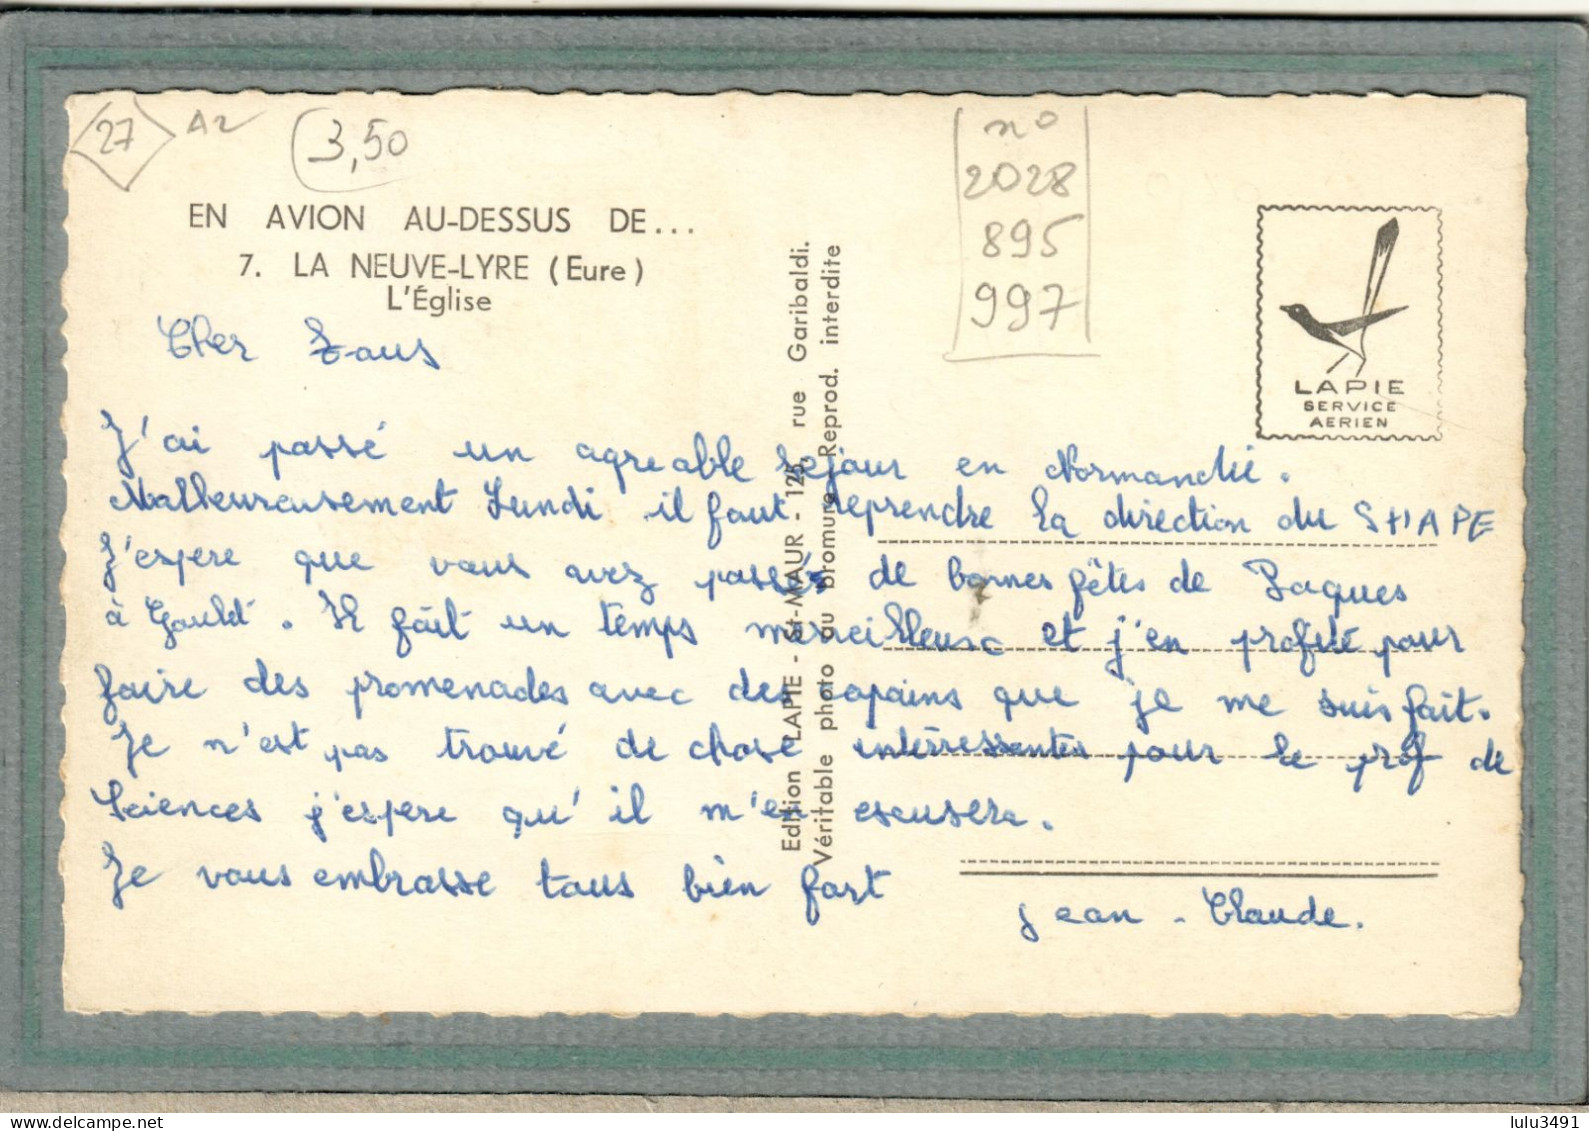 27
A2
3,50
n°
2028
895
997
EN AVION AU-DESSUS DE...
7. LA NEUVE-LYRE (Eure)
L'Église
LAPIE
SERVICE
AERIEN
Edition LAPIE - St-MAUR - 125, rue Garibaldi.
Véritable photo au bromure Reprod. interdite
Cher Zaus
J'ai passé un agreable sejour en Normandie.
Malheureusement Lundi il faut reprendre la direction du SHAPE
J'espere que vous avez passés de bonnes fêtes de Paques
à . Il fait un temps merveilleux et j'en profite pour
faire des promenades avec des copains que je me suis fait.
Je n'est pas trouvé de chose interressentes pour le prof de
Sciences j'espere qu'il m'en escusera.
Je vous embrasse tous bien fort
Jean - Claude.
lulu3491